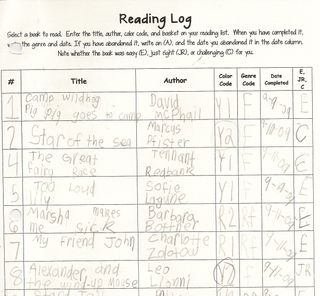 Reading Log
Select a book to read. Enter the title, author, color code, and basket on your reading list. When you have completed it,
the genre and date. If you have abandoned it, write an (A), and the date you abandoned it in the date column.
Note whether the book was easy (E), just right (JR), or challenging (C) for you.
# Title Author Color Code Genre Code Date Completed E, JR, C
1 Camp wildhog David Y1 F E
Pig pig goes to camp mcPhail
2 Star of the sea Marcus Pfister Y2 F C
4 The Great Fairy Race Tennant Redbank Y1 F E
5 Too Loud Lily Sofie Laguna Y1 F E
6 Marsha makes me sick Barbara Bottner R2 Rf E
7 My friend John Charlotte Zolotow R1 Rf E
8 Alexander and the wind-up mouse Leo Lionni Y2 F JR